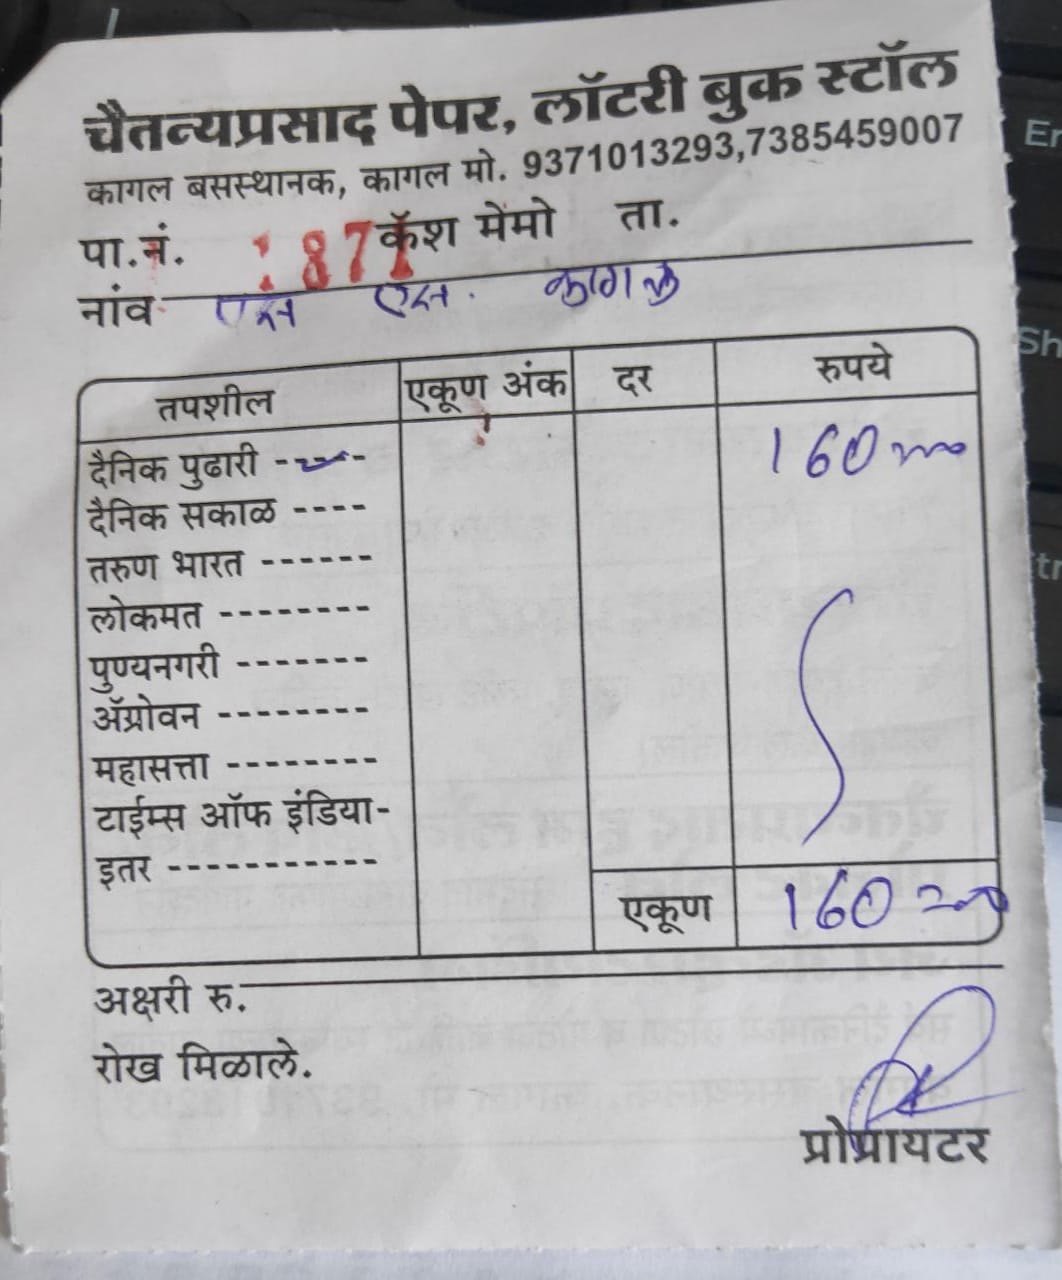 चैतन्यप्रसाद पेपर, लॉटरी बुक स्टॉल
कागल बसस्थानक, कागल मो. 9371013293,7385459007
पा.नं. 871 कॅश मेमो ता.
नांव एस एस. कागल
तपशील एकूण अंक दर रुपये
दैनिक पुढारी ---- 160
दैनिक सकाळ ----
तरुण भारत ------
लोकमत --------
पुण्यनगरी -------
ॲग्रोवन --------
महासत्ता --------
टाईम्स ऑफ इंडिया-
इतर -----------
एकूण 160
अक्षरी रु.
रोख मिळाले.
प्रोप्रायटर